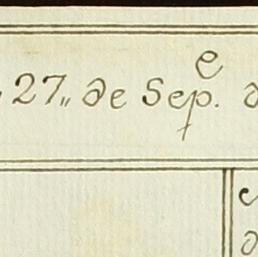 27,, de Sep.e